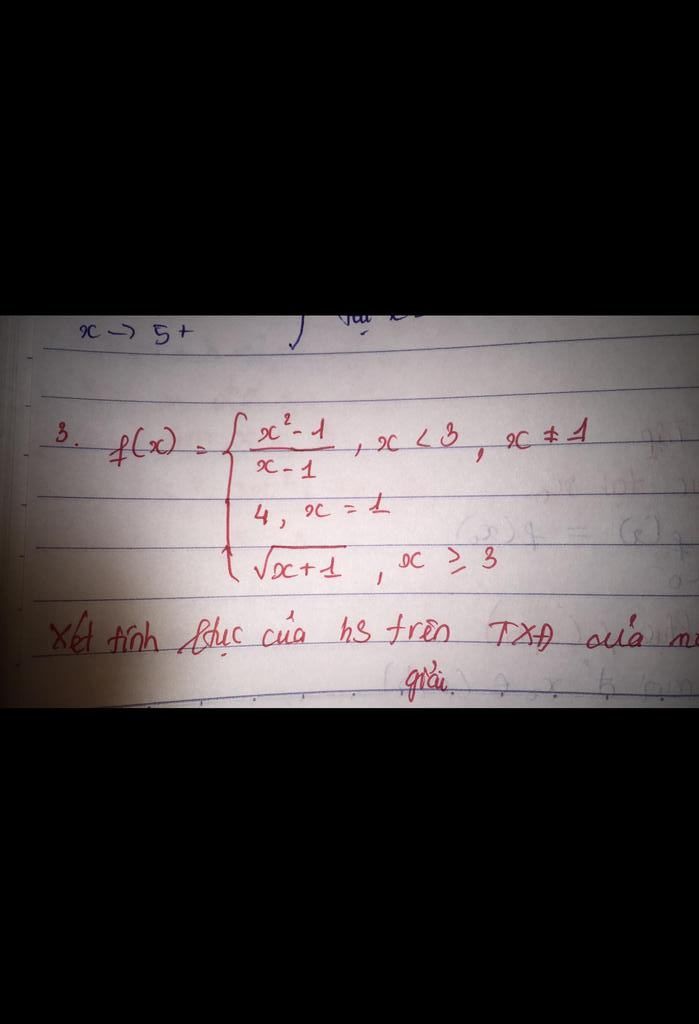 x → 5+
3. f(x) = { x² - 1 / x - 1 , x < 3 , x ≠ 1
4, x = 1
√x+1 , x ≥ 3
Xét tính ltục của hs trên TXĐ của
giải